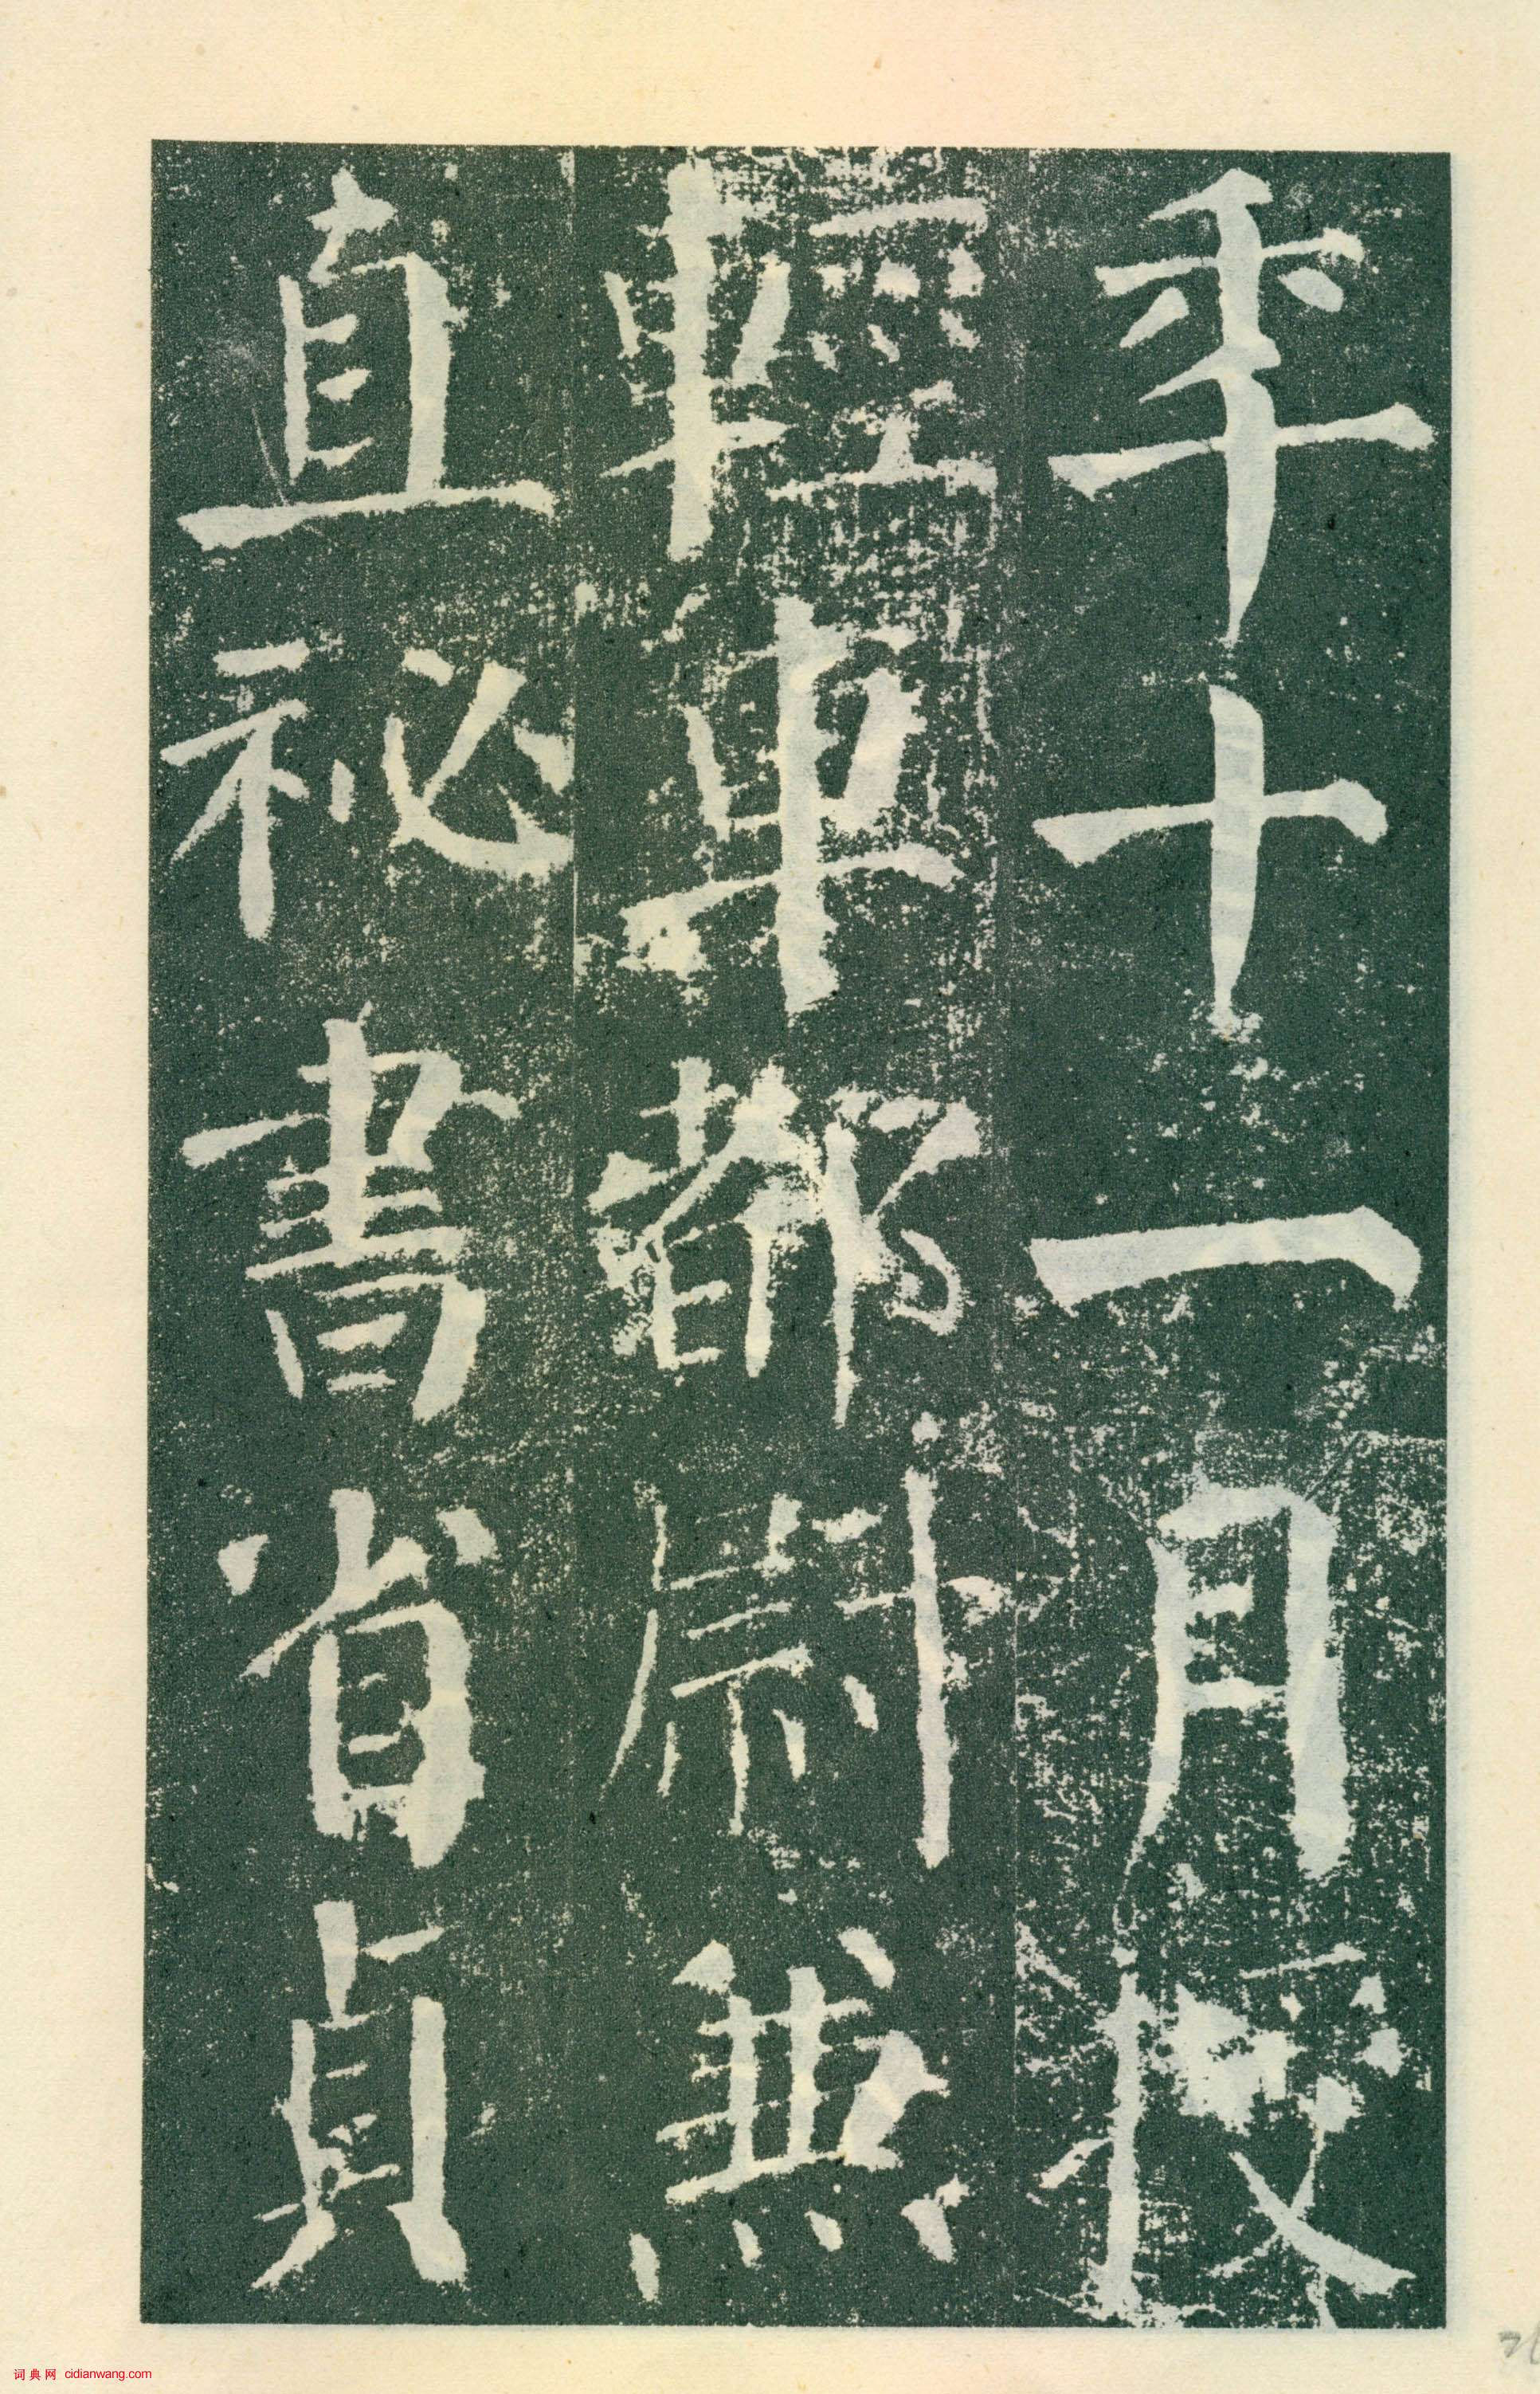 年十一月授
輕車都尉兼
直祕書省貞
词典网 cidianwang.com